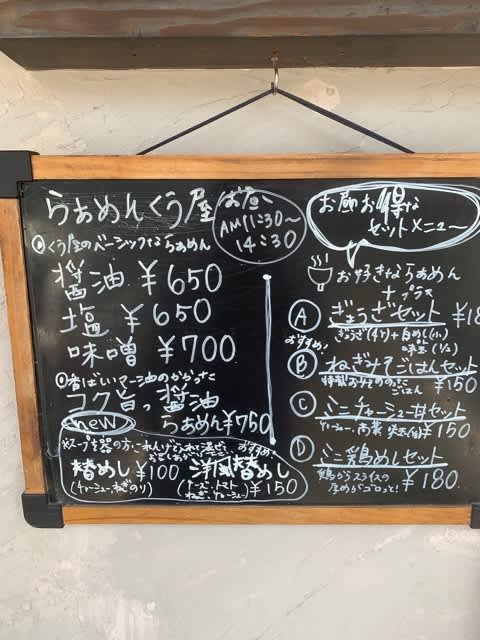 らぁめんくう屋
お昼
AM11:30〜
14:30
くう屋のベーシックならぁめん
醤油 ¥650
塩 ¥650
味噌 ¥700
香ばいマー油のかかった
コク旨っ醤油
らぁめん¥750
new
※スープを器の方へこれんげで入れて混ぜ
おすすめ!
替めし ¥100
(チャーシュー、ねぎ、のり)
洋風替めし
(チーズ、トマト
ねぎ、チャーシュー) ¥150
お昼お得な
セットメニュー
お好きならぁめん
+プラス
Ⓐ ぎょうざセット ¥18
ぎょうざ(4ヶ)+白めし(小)
味玉(1/2)
おすすめ!
Ⓑ ねぎみそごはんセット
特製おみそののった
ごはん ¥150
Ⓒ ミニチャーシュー丼セット
¥150
Ⓓ ミニ鶏めしセット
鶏がらスライスの
厚めがゴロっと! ¥180